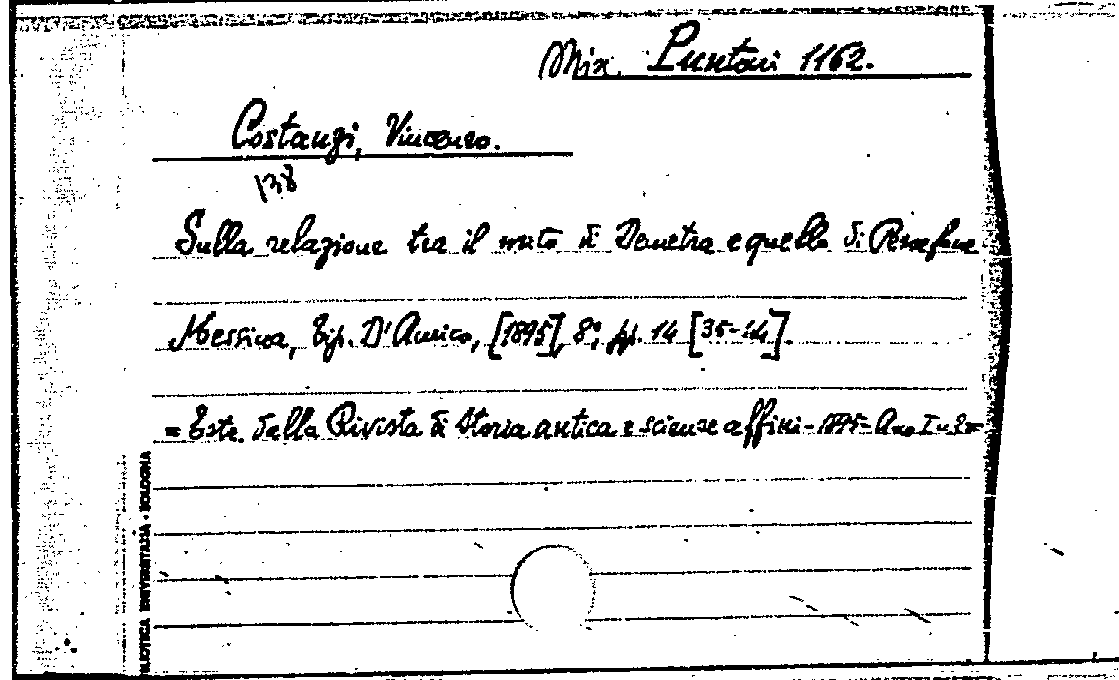 Mix. Puntoni 1162.
Costanzi, Vincenzo.
138
Sulla relazione tra il mito di Demetra e quello di Persefone
Messina, Tip. D'Amico, [1895], 8°, pp. 14 [35-44].
= Estr. dalla Rivista di Storia antica e scienze affini - 1895 - Anno I n.
BLIOTECA UNIVERSITARIA - BOLOGNA